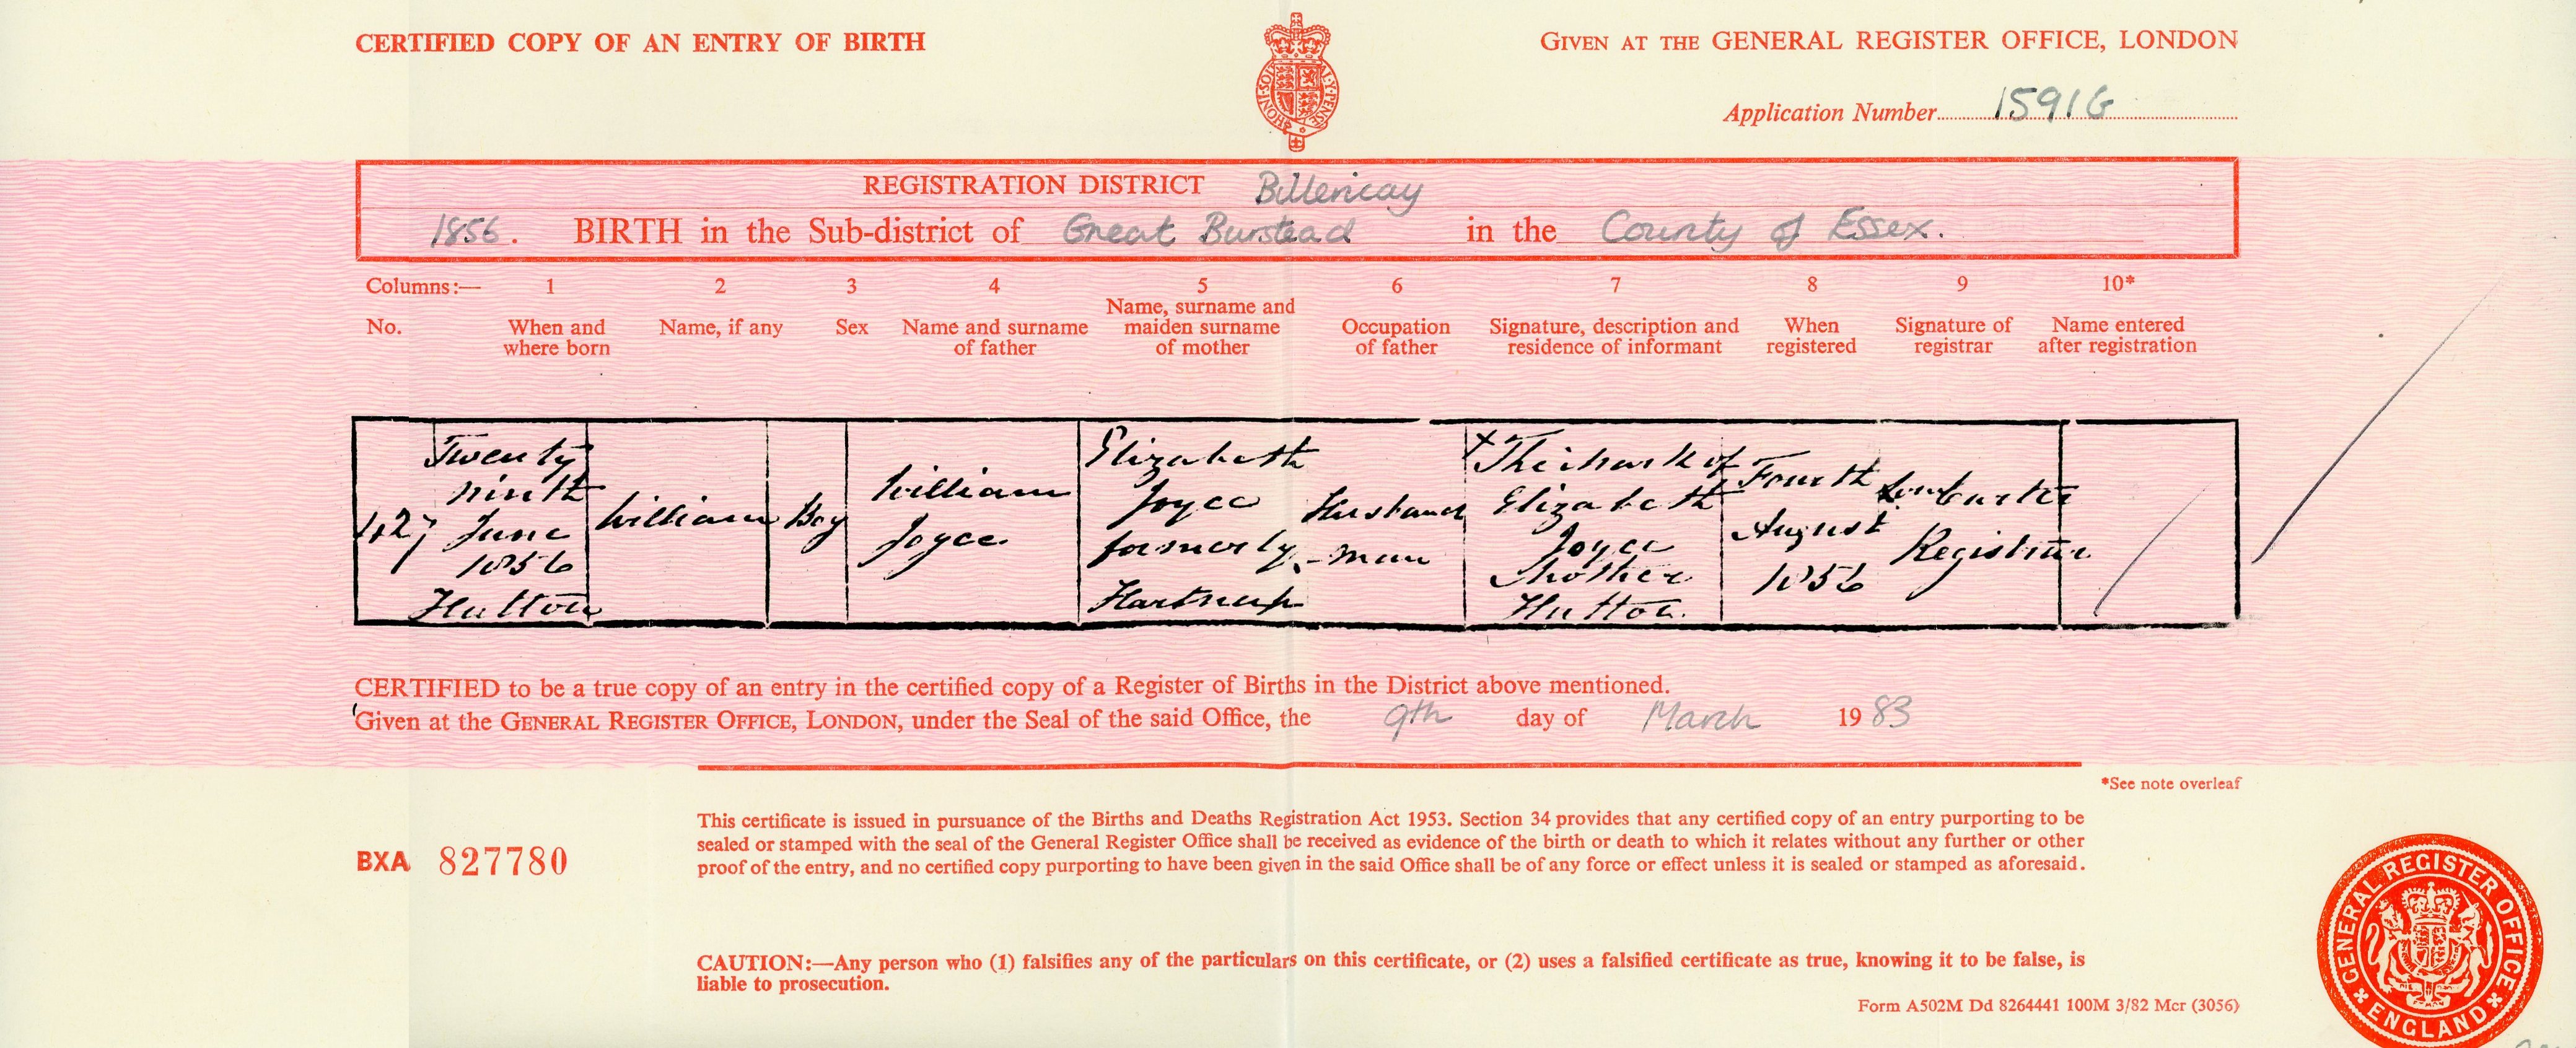 CERTIFIED COPY OF AN ENTRY OF BIRTH
GIVEN AT THE GENERAL REGISTER OFFICE, LONDON
HONI·SOIT Y·PENSE
Application Number 1591G
REGISTRATION DISTRICT Billericay
1856. BIRTH in the Sub-district of Great Burstead in the County of Essex.
Columns:— 1 2 3 4 5 6 7 8 9 10*
No.
When and
where born
Name, if any
Sex
Name and surname
of father
Name, surname and
maiden surname
of mother
Occupation
of father
Signature, description and
residence of informant
When
registered
Signature of
registrar
Name entered
after registration
427
Twenty
ninth
June
1856
Hutton
William
Boy
William
Joyce
Elizabeth
Joyce
formerly
Hartnup
Husband
-man
X The mark of
Elizabeth
Joyce
Mother
Hutton.
Fourth
August
1856
Registrar
CERTIFIED to be a true copy of an entry in the certified copy of a Register of Births in the District above mentioned.
Given at the GENERAL REGISTER OFFICE, LONDON, under the Seal of the said Office, the 9th day of March 1983
*See note overleaf
This certificate is issued in pursuance of the Births and Deaths Registration Act 1953. Section 34 provides that any certified copy of an entry purporting to be
sealed or stamped with the seal of the General Register Office shall be received as evidence of the birth or death to which it relates without any further or other
proof of the entry, and no certified copy purporting to have been given in the said Office shall be of any force or effect unless it is sealed or stamped as aforesaid.
BXA 827780
CAUTION:—Any person who (1) falsifies any of the particulars on this certificate, or (2) uses a falsified certificate as true, knowing it to be false, is
liable to prosecution.
Form A502M Dd 8264441 100M 3/82 Mcr (3056)
GENERAL REGISTER OFFICE
ENGLAND